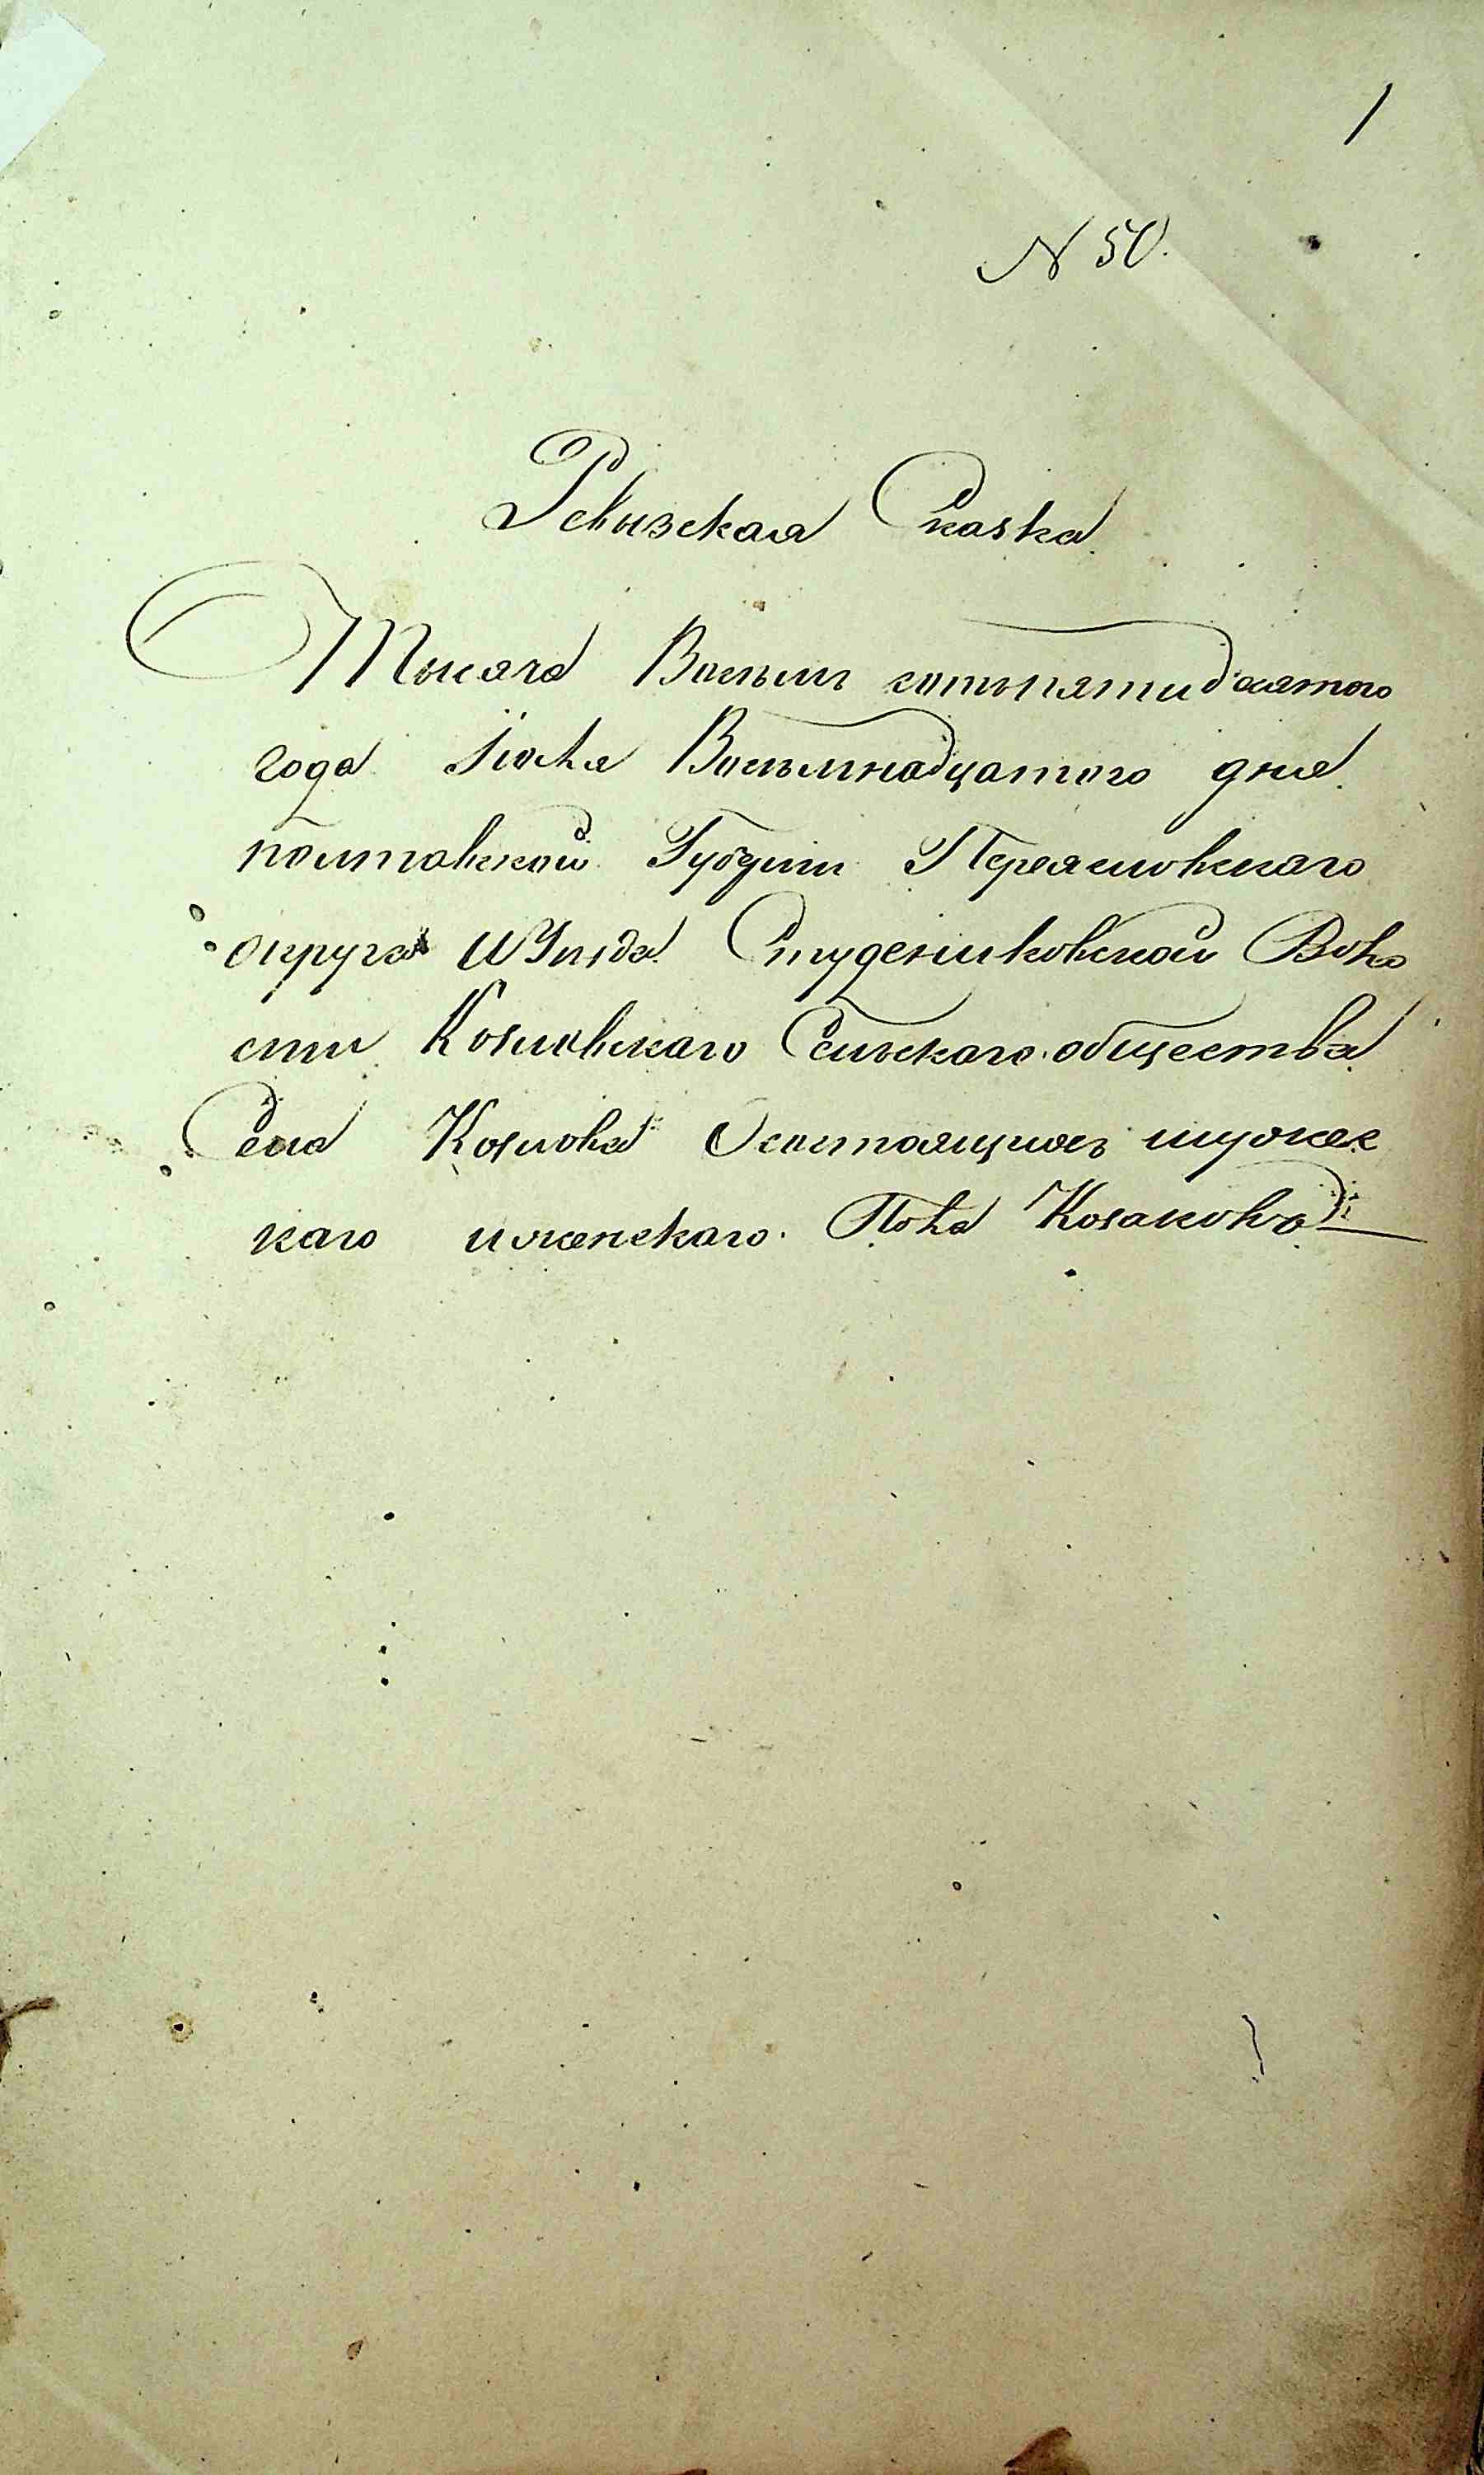 1
N 50.
Ревизская Сказка
Тысяча Восемь сотъпятидесятого
года Іюля Восемнадцатого дня.
полтавской Губерніи Переяславского
округа и Уезда Студениковской Воло
сти Козловскаго Сельскаго общества
Села Козлова Осостоящихъ мужес
каго иженскаго Пола Козаковъ